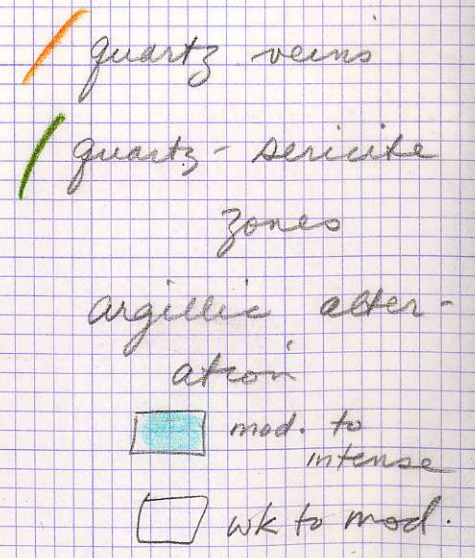 quartz veins
quartz - sericite
zones
argillic alter-
ation
mod. to
intense
wk to mod.